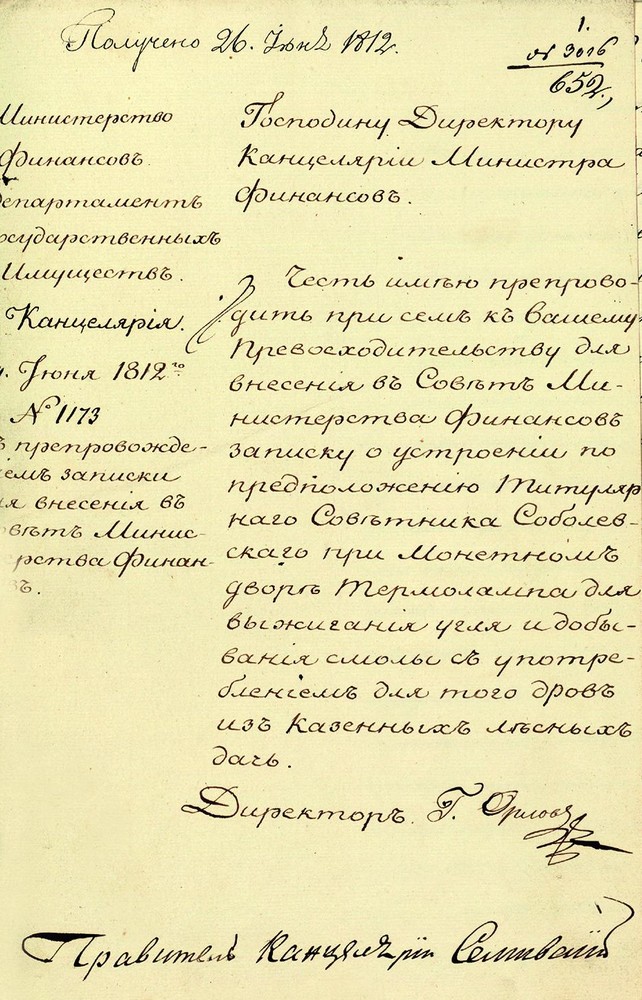 Получено 26. Іюнѣ 1812.
1.
№ 3016
652.
Министерство
Финансовъ.
департаментъ
осударственныхъ
Имуществъ.
Канцелярія.
Іюня 1812го
№ 1173
ъ препровожде-
ѣемъ записки
я внесенія въ
овѣтъ Минис-
ерства Финан-
въ.
Господину Директору
Канцеляріи Министра
Финансовъ.
Честь имѣю препрово-
дить при семъ къ Вашему
Превосходительству для
внесенія въ Совѣтъ Ми-
нистерства Финансовъ
записку о устроеніи по
предположенію Титуляр
наго Совѣтника Соболев-
скаго при Монетномъ
дворѣ Термолампа для
выжиганія угля и добы-
ванія смолы съ употре-
бленіемъ для того дровъ
изъ Казенныхъ лѣсныхъ
дачь.
Директоръ. Г. Орловъ
Правитель Канцеляріи